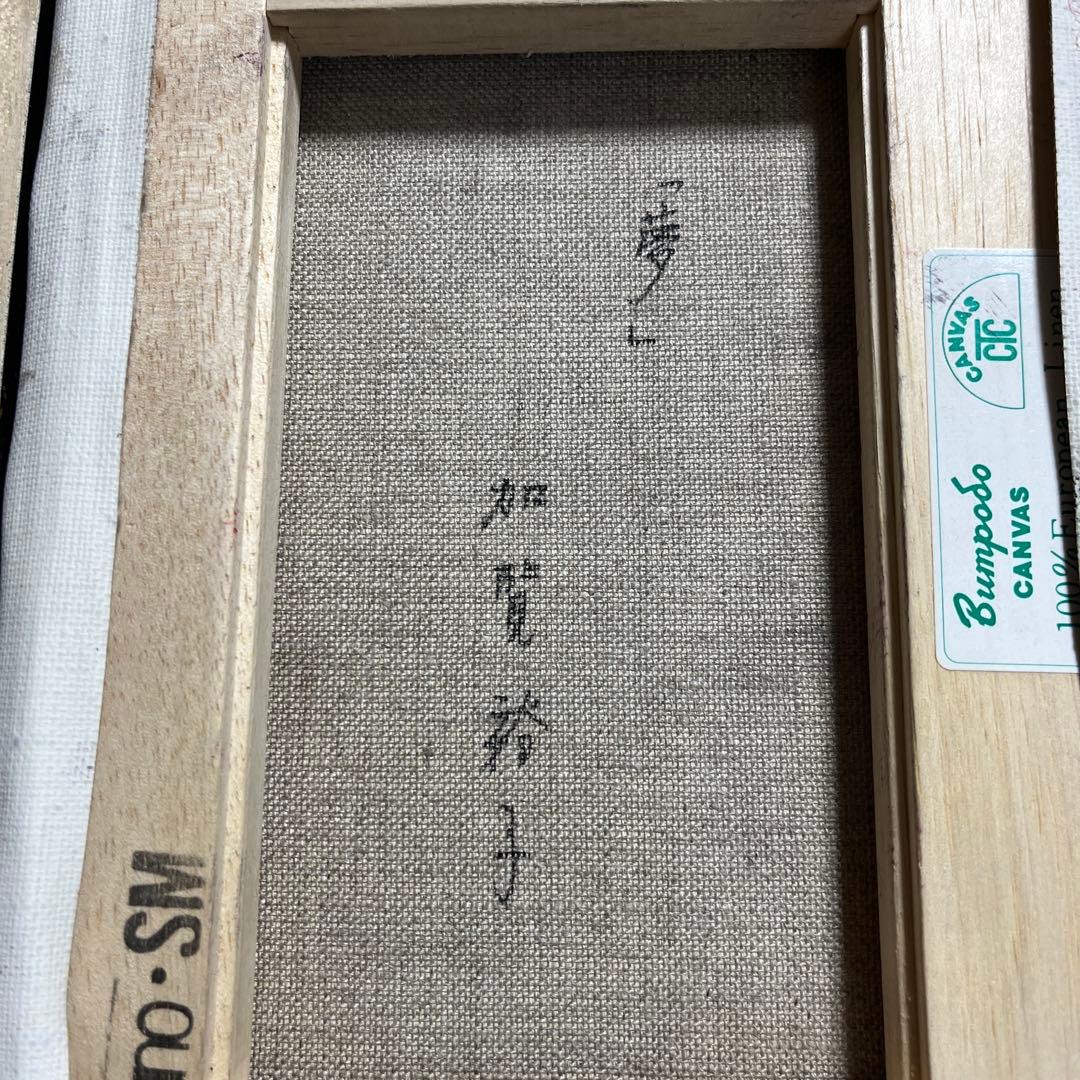 「夢」
加覧裕子
CANVAS
CTC
Bumpodo
CANVAS
100% European Linen
no・SM